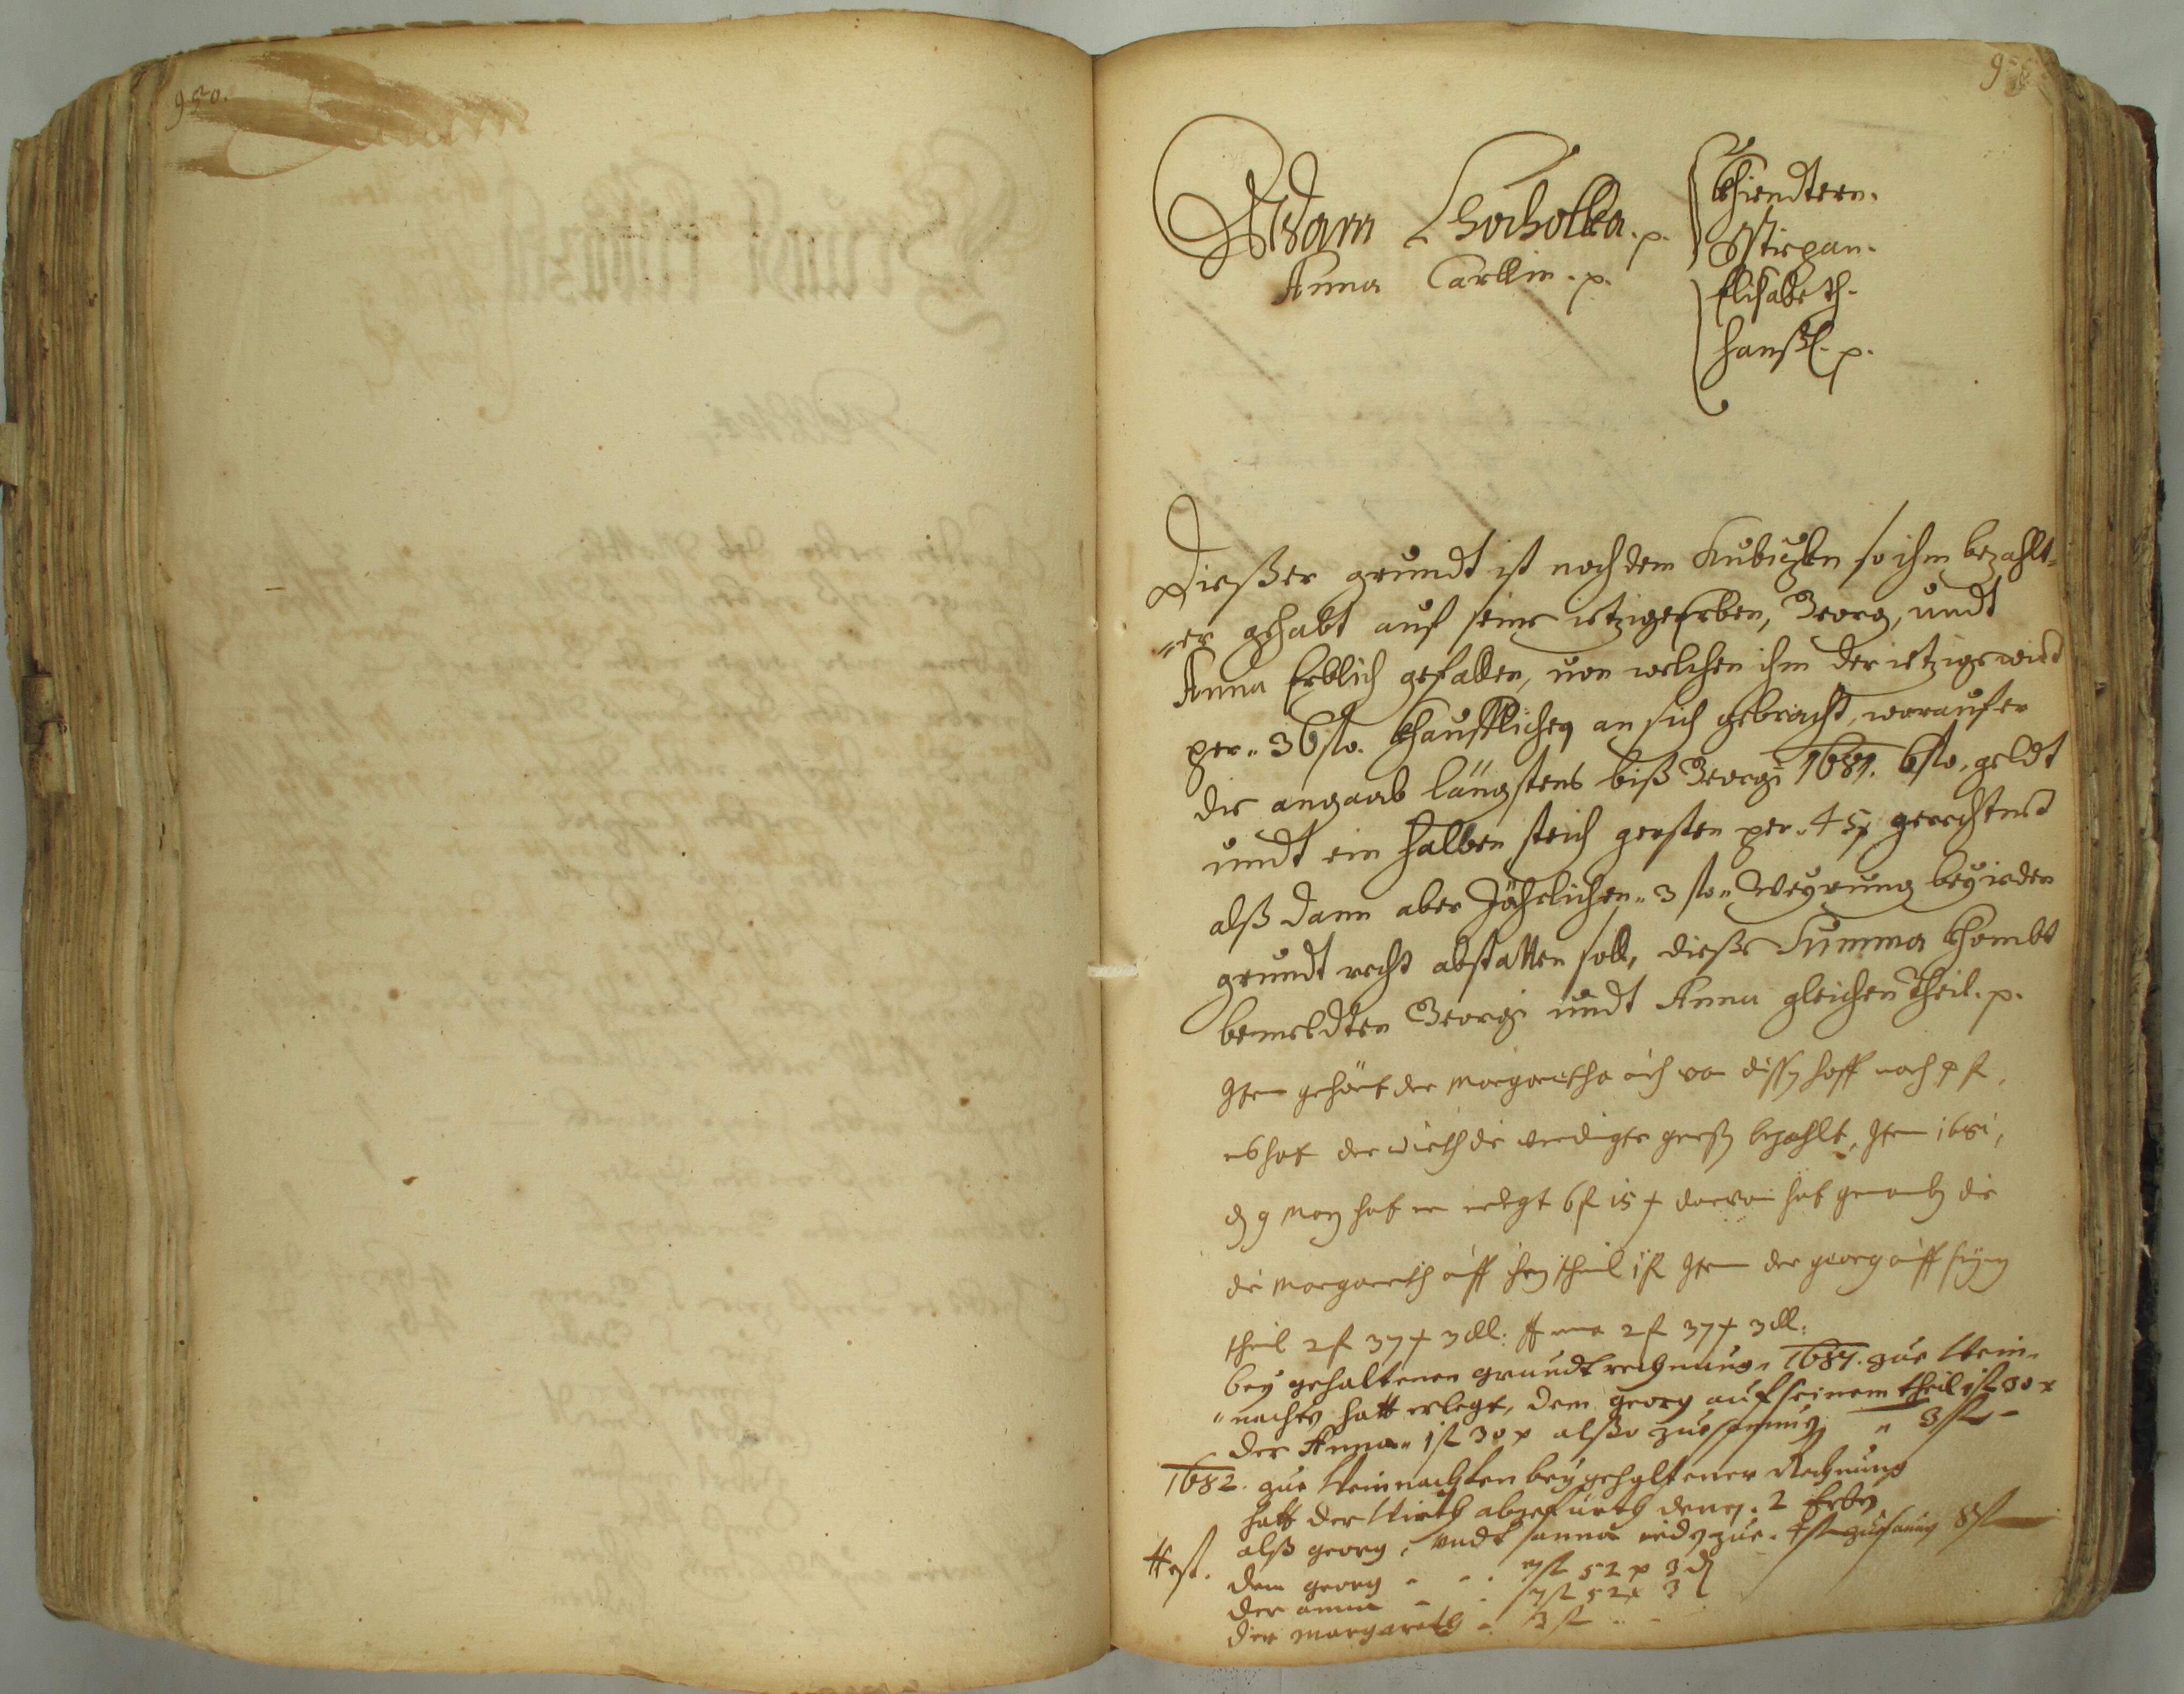 950.
Adam Chocholka. p.
Anna Carllin. p.
Khiendtern.
Sstiepan.
Elisabeth.
Hanßl. p.
Dießer grundt ist nach dem Kubiczken so ihm bezahlt
er gehabt auf seine ietzige Erben, Georg, undt
Anna Erblich gefallen, von welchen ihm der ietzige wird
per. 36 ſſo. Khaufflichen an sich gebracht, worauf er
die angaab längstens biß Georgi 1681. 6 ſſo. geldt
undt ein halben streich gersten per. 45 x gerechtnet
alß dann aber Jährlichen. 3 ſſo. Weyrung bey ieden
grundt recht abstatten soll, dieße Summa Khombt
bemeldten Georgi undt Anna gleichen Theil. p.
Item gehört der Margaretha auch von dissen hoff noch
hat der Wirth die bezahlt, Item 1681,
9 May hat er erlegt 6 f 15 x davon hat die
die Margareth auff ihren theil 1 f Item der georg auff seinen
theil 2 f 37 x 3 dl. 2 f 37 x 3 dl.
bey gehaltenen grundt rechnung. 1681. zue Wein-
nachten hatt erlegt, dem georg auf seinem theil 1 f 30 x
der Anna. 1 f 30 x alßo zuesammen 3 f
1682. zue Weinnachten bey gehaltener Rechnung
hatt der Wirth abgefürth denen. 2 Erben
alß georg, undt anna ieden zue. 4 f zusamen 8 f
Rest.
dem georg 7 f 52 x 3 d
der anna 7 f 52 x 3
der margareth 3 f